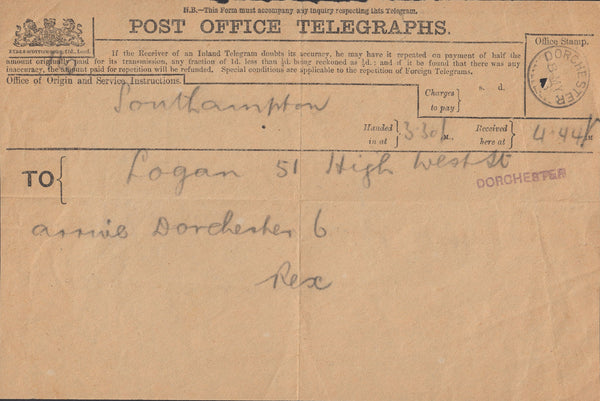 N.B.—This Form must accompany any inquiry respecting this Telegram.
POST OFFICE TELEGRAPHS.
If the Receiver of an Inland Telegram doubts its accuracy, he may have it repeated on payment of half the
amount originally paid for its transmission, any fraction of 1d. less than ½d. being reckoned as ½d.; and if it be found that there was any
inaccuracy, the amount paid for repetition will be refunded. Special conditions are applicable to the repetition of Foreign Telegrams.
Office Stamp.
DORCHESTER
Office of Origin and Service Instructions.
Southampton
Charges to pay
s. d.
Handed in at
3.30
M.
Received here at
4.44
M
TO
Logan 51 High West St
DORCHESTER
arrive Dorchester 6
Rex